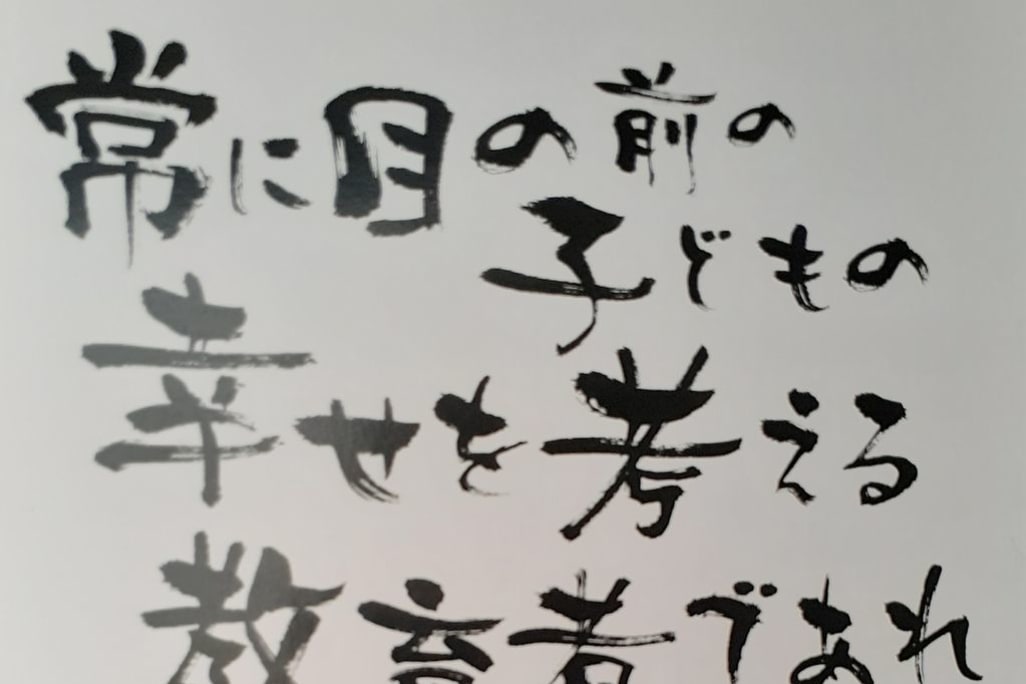 常に目の前の
子どもの
幸せを考える
教育者であれ